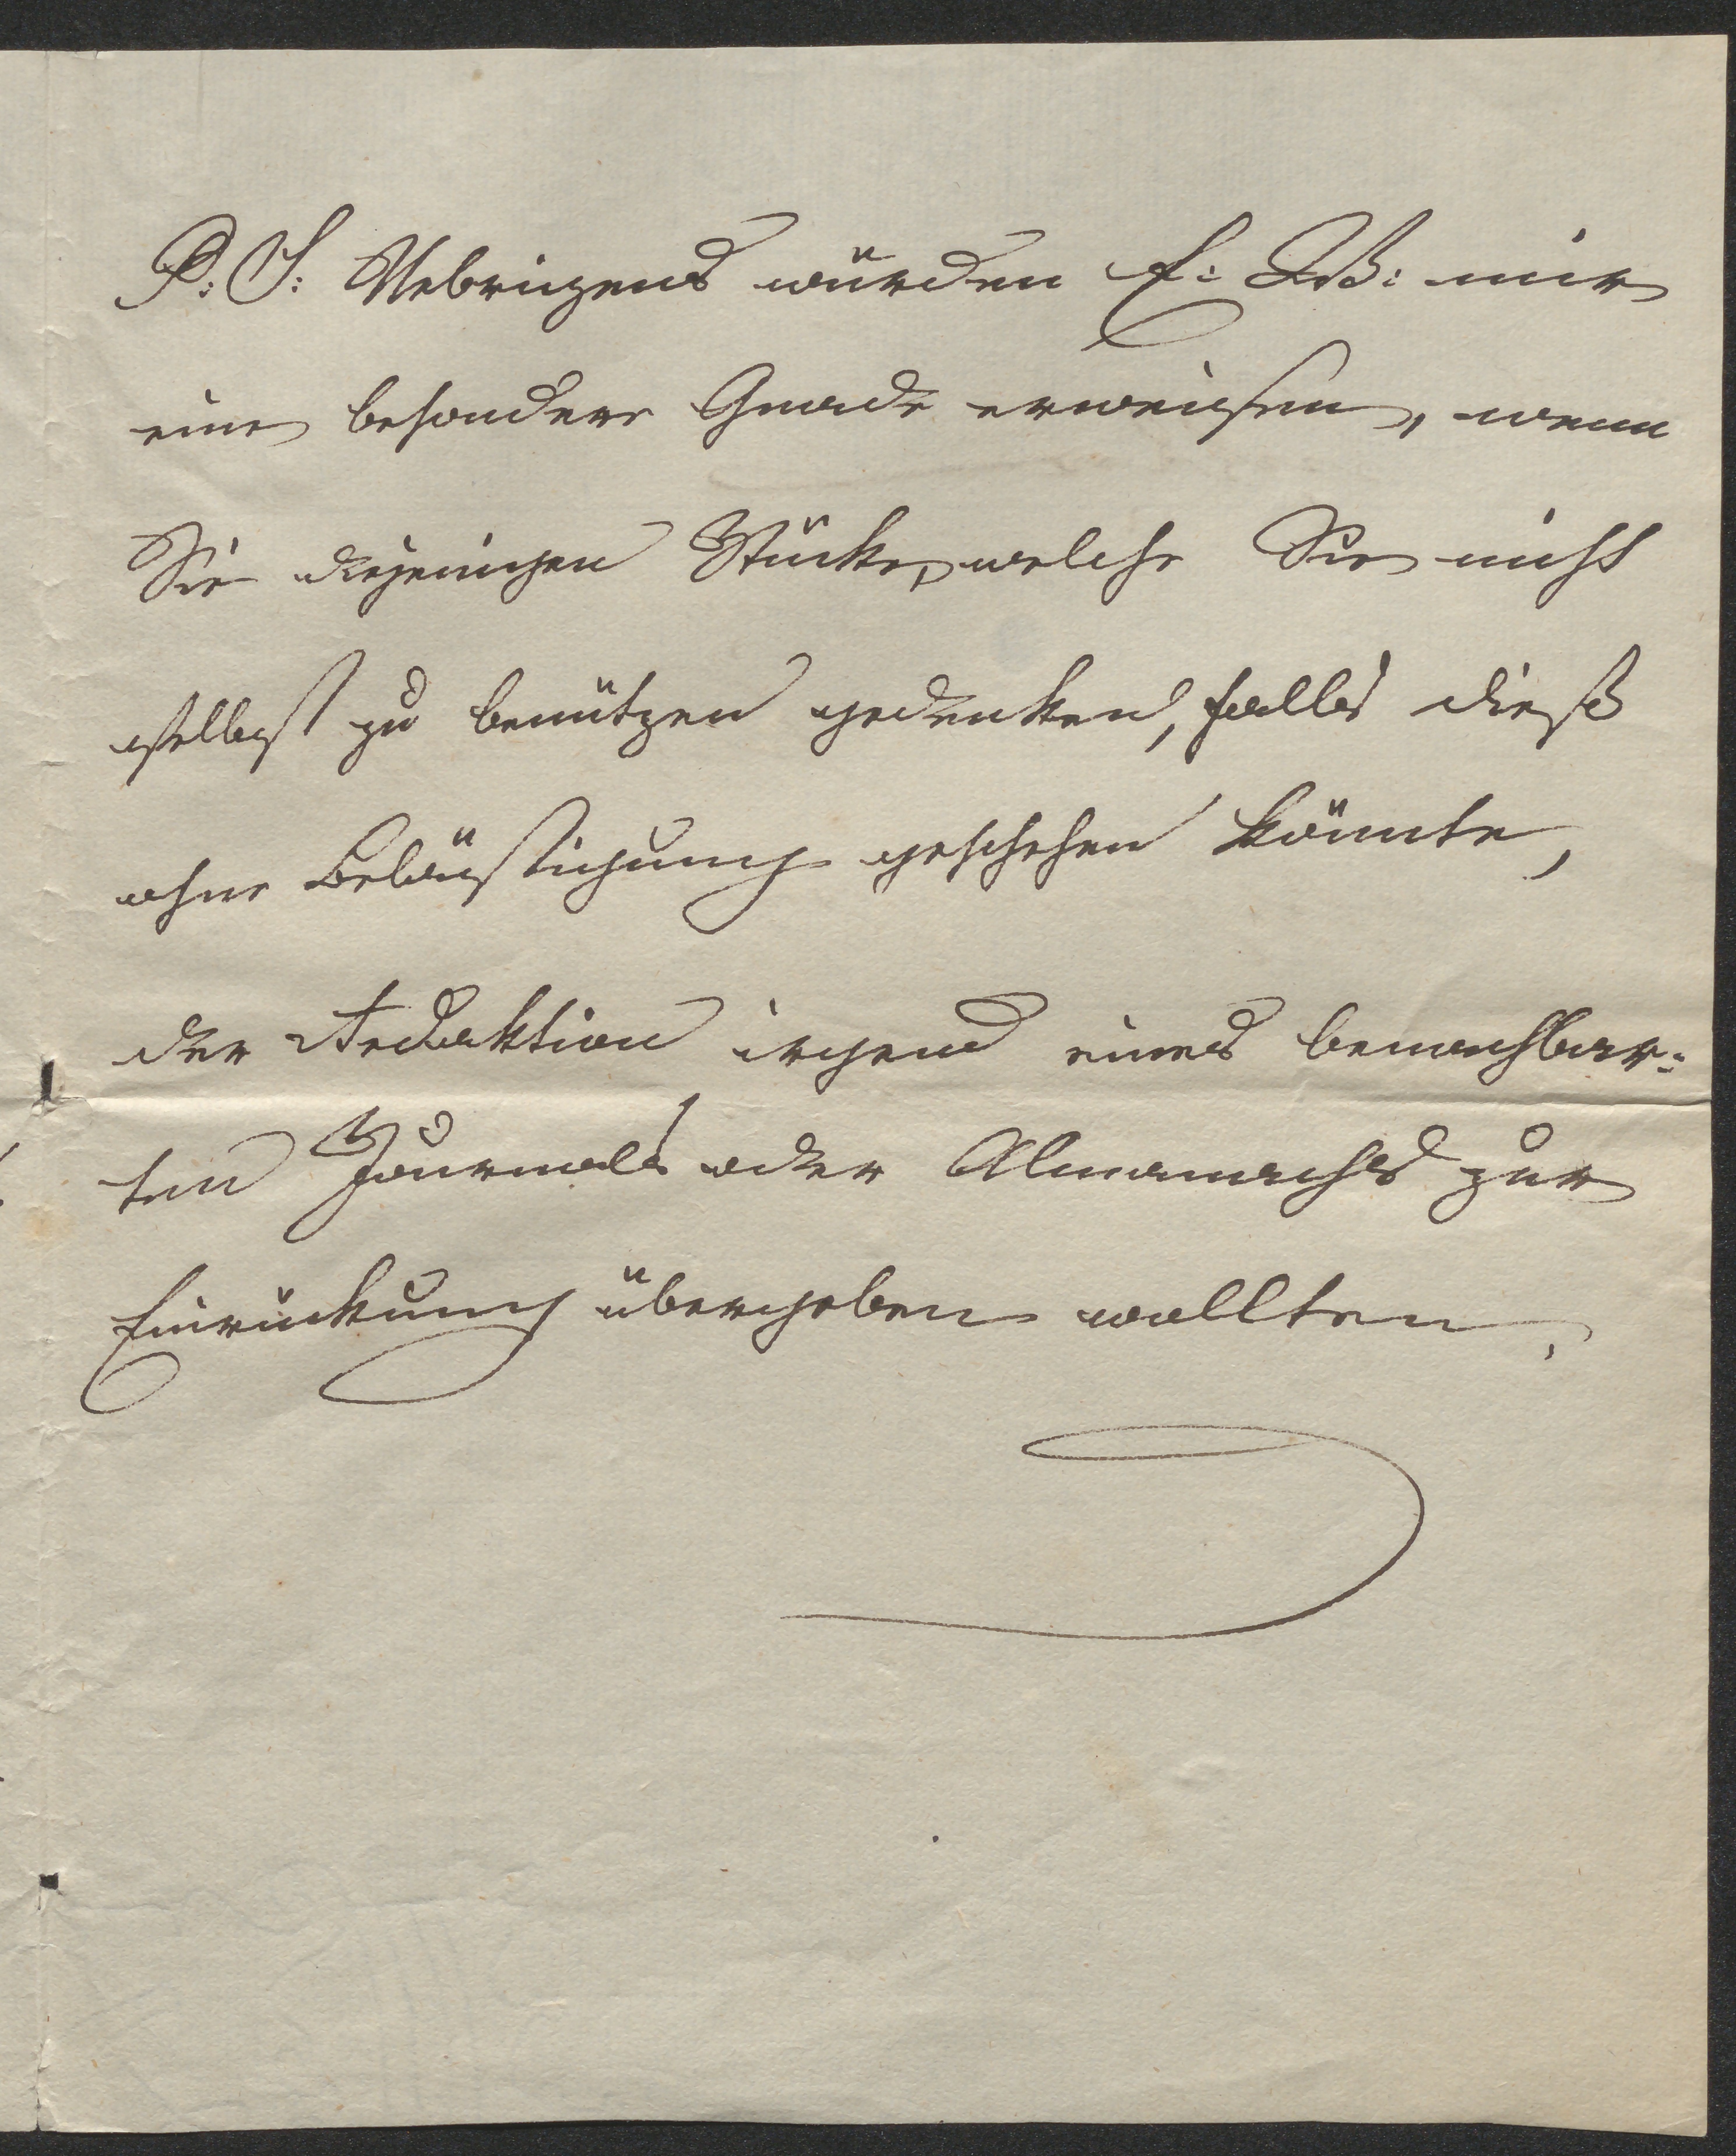 P: S: Uebrigens würden E: W: mir
eine besondere Gnade erweisen, wenn
Sie diejenigen Stücke, welche Sie nicht
selbst zu benützen gedenken, falls dieß
ohne Belästigung geschehen könnte,
der Redaktion irgend eines benachbar:
ten Journals oder Almanachs zur
Einrückung übergeben wollten.